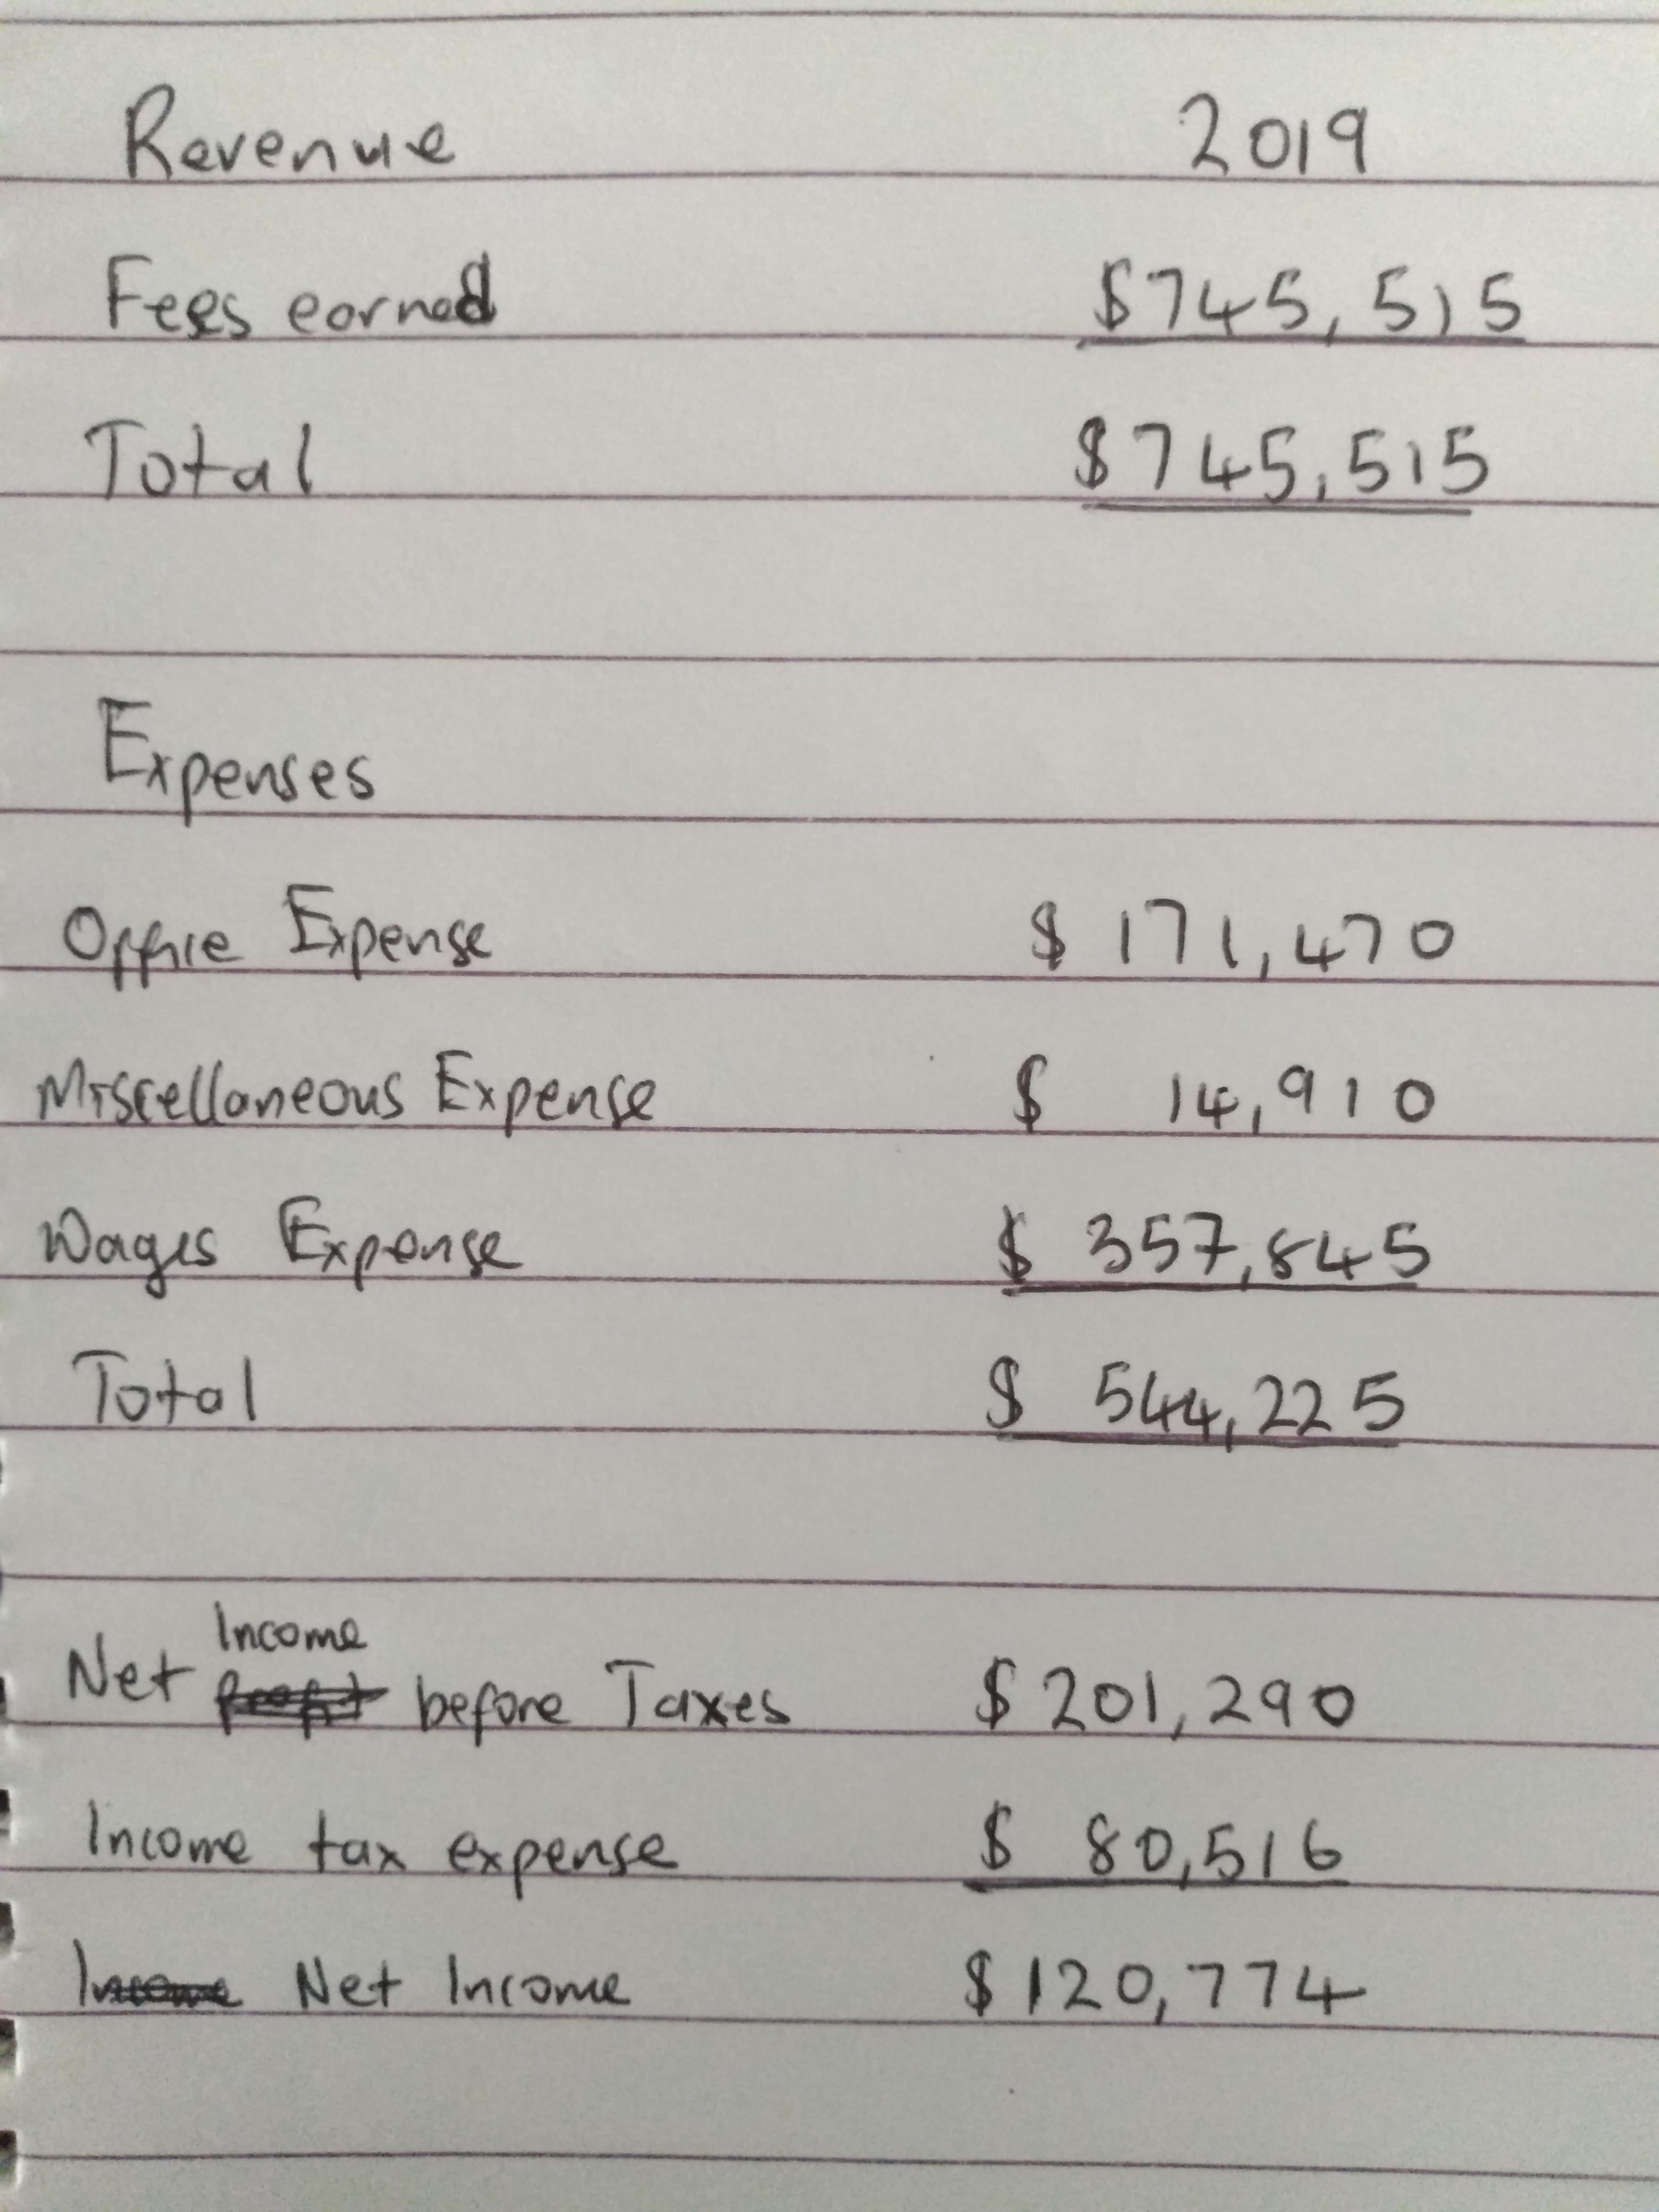 Revenue 2019
Fees earned $745,515
Total $745,515
Expenses
Office Expense $ 171,470
Miscellaneous Expense $ 14,910
Wages Expense $ 357,845
Total $ 544,225
Income
Net before Taxes $ 201,290
Income tax expense $ 80,516
Income Net Income $ 120,774